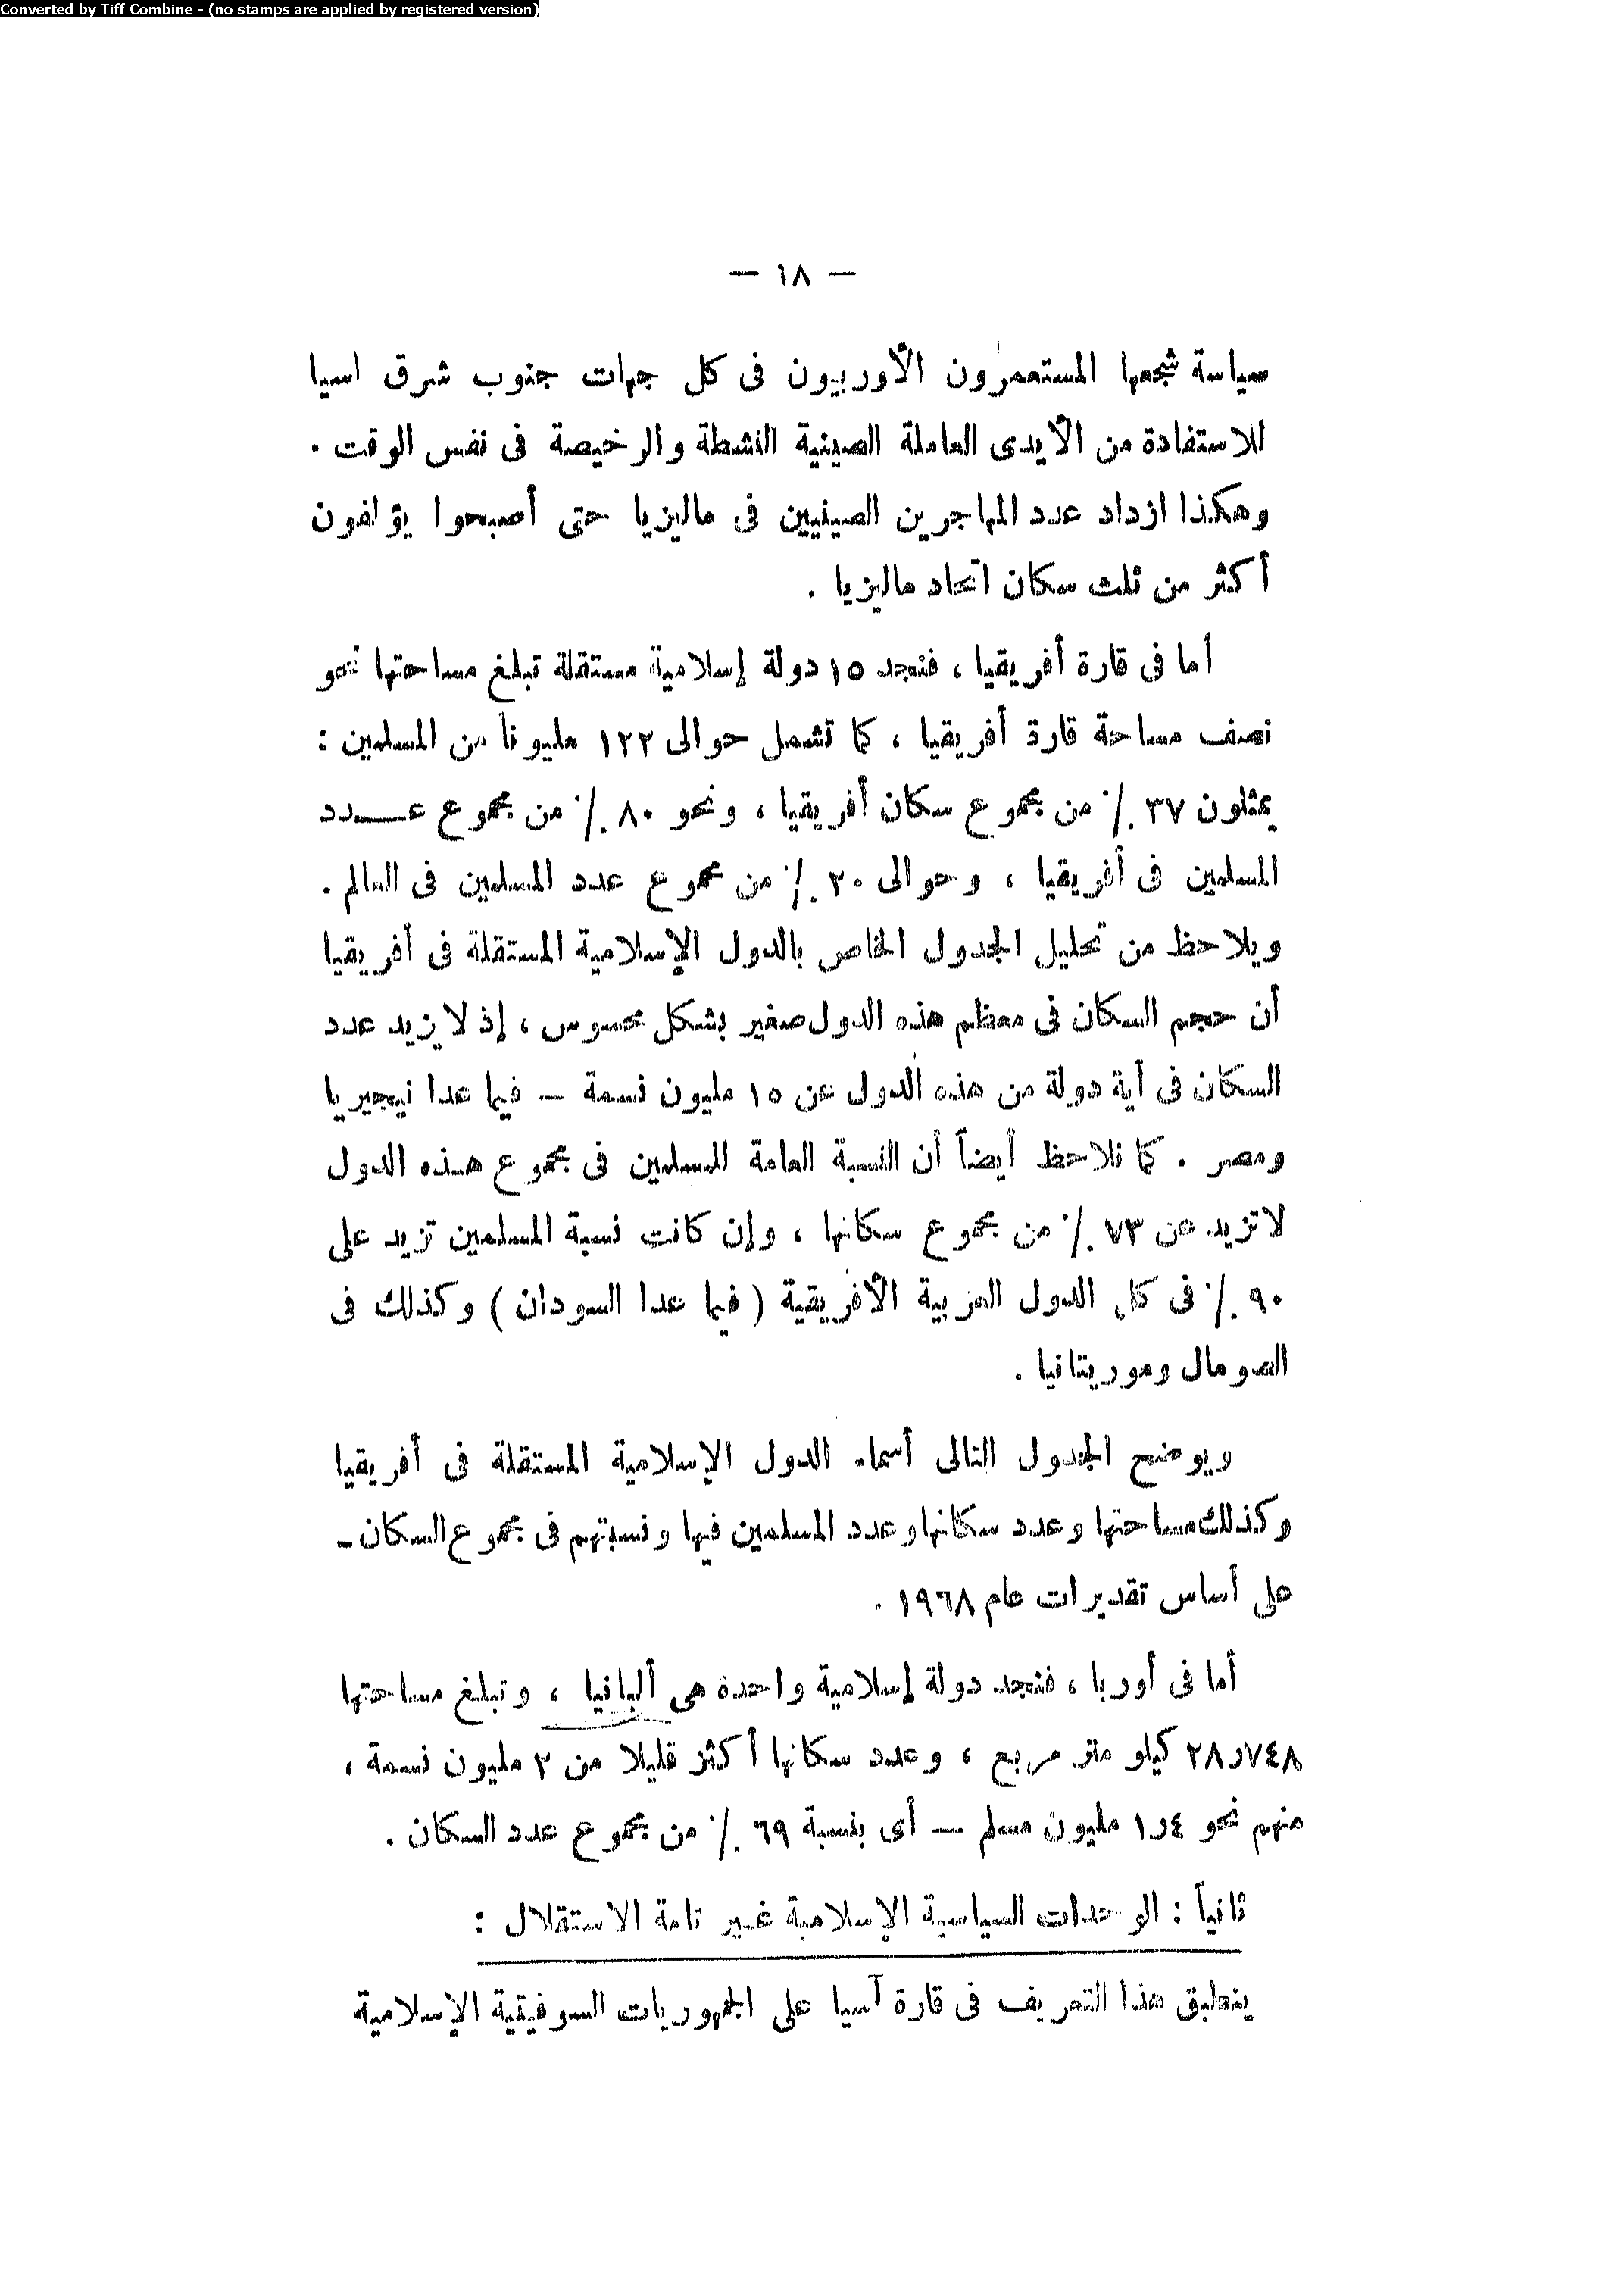 Converted by Tiff Combine - (no stamps are applied by registered version)
— ١٨ —
سياسة شجعها المستعمرون الأوربيون فى كل جهات جنوب شرق اسيا
للاستفادة من الأيدى العاملة الصينية النشطة والرخيصة فى نفس الوقت .
وهكذا ازداد عدد المهاجرين الصينيين فى ماليزيا حتى أصبحوا يؤلفون
أكثر من ثلث سكان اتحاد ماليزيا .
أما فى قارة أفريقيا ، فنجد ١٥ دولة إسلامية مستقلة تبلغ مساحتها نحو
نصف مساحة قارة أفريقيا ، كما تشمل حوالى ١٢٢ مليونا من المسلمين :
يمثلون ٣٧ ٪ من مجموع سكان أفريقيا ، ونحو ٨٠ ٪ من مجموع عـــدد
المسلمين فى أفريقيا ، وحوالى ٢٠ ٪ من مجموع عدد المسلمين فى العالم .
ويلاحظ من تحليل الجدول الخاص بالدول الإسلامية المستقلة فى أفريقيا
أن حجم السكان فى معظم هذه الدول صغير بشكل محسوس ، إذ لا يزيد عدد
السكان فى أية دولة من هذه الدول عن ١٥ مليون نسمة — فيما عدا نيجيريا
ومصر . كما نلاحظ أيضاً أن النسبة العامة للمسلمين فى مجموع هـذه الدول
لا تزيد عن ٧٣ ٪ من مجموع سكانها ، وإن كانت نسبة المسلمين تزيد على
٩٠ ٪ فى كل الدول العربية الأفريقية ( فيما عدا السودان ) وكذلك فى
الصومال وموريتانيا .
ويوضح الجدول التالى أسماء الدول الإسلامية المستقلة فى أفريقيا
وكذلك مساحتها وعدد سكانها وعدد المسلمين فيها ونسبتهم فى مجموع السكان -
على أساس تقديرات عام ١٩٦٨ .
أما فى أوربا ، فنجد دولة إسلامية واحدة هى ألبانيا ، وتبلغ مساحتها
٢٨ر٧٤٨ كيلو متر مربع ، وعدد سكانها أكثر قليلا من ٢ مليون نسمة ،
منهم نحو ١ر٤ مليون مسلم — أى بنسبة ٦٩ ٪ من مجموع عدد السكان .
ثانياً : الوحدات السياسية الإسلامية غير تامة الاستقلال :
ينطبق هذا التعريف فى قارة آسيا على الجمهوريات السوفيتية الإسلامية